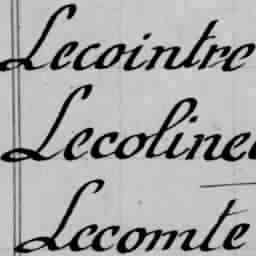 Lecointre
Lecoline
Lecomte